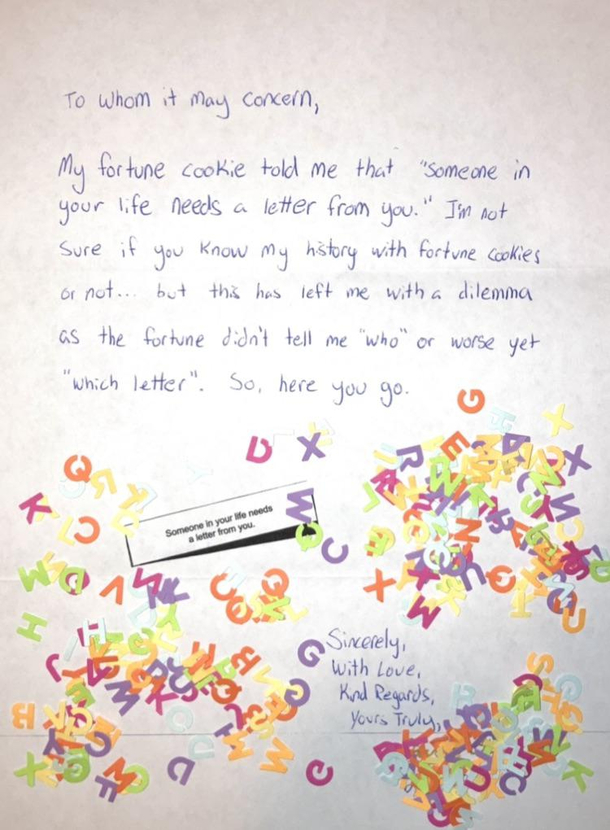 To whom it may concern,
My fortune cookie told me that "someone in
your life needs a letter from you." I'm not
sure if you know my history with fortune cookies
or not... but this has left me with a dilemma
as the fortune didn't tell me "who" or worse yet
"which letter". So, here you go.
Someone in your life needs
a letter from you.
Sincerely,
With Love,
Kind Regards,
Yours Truly,